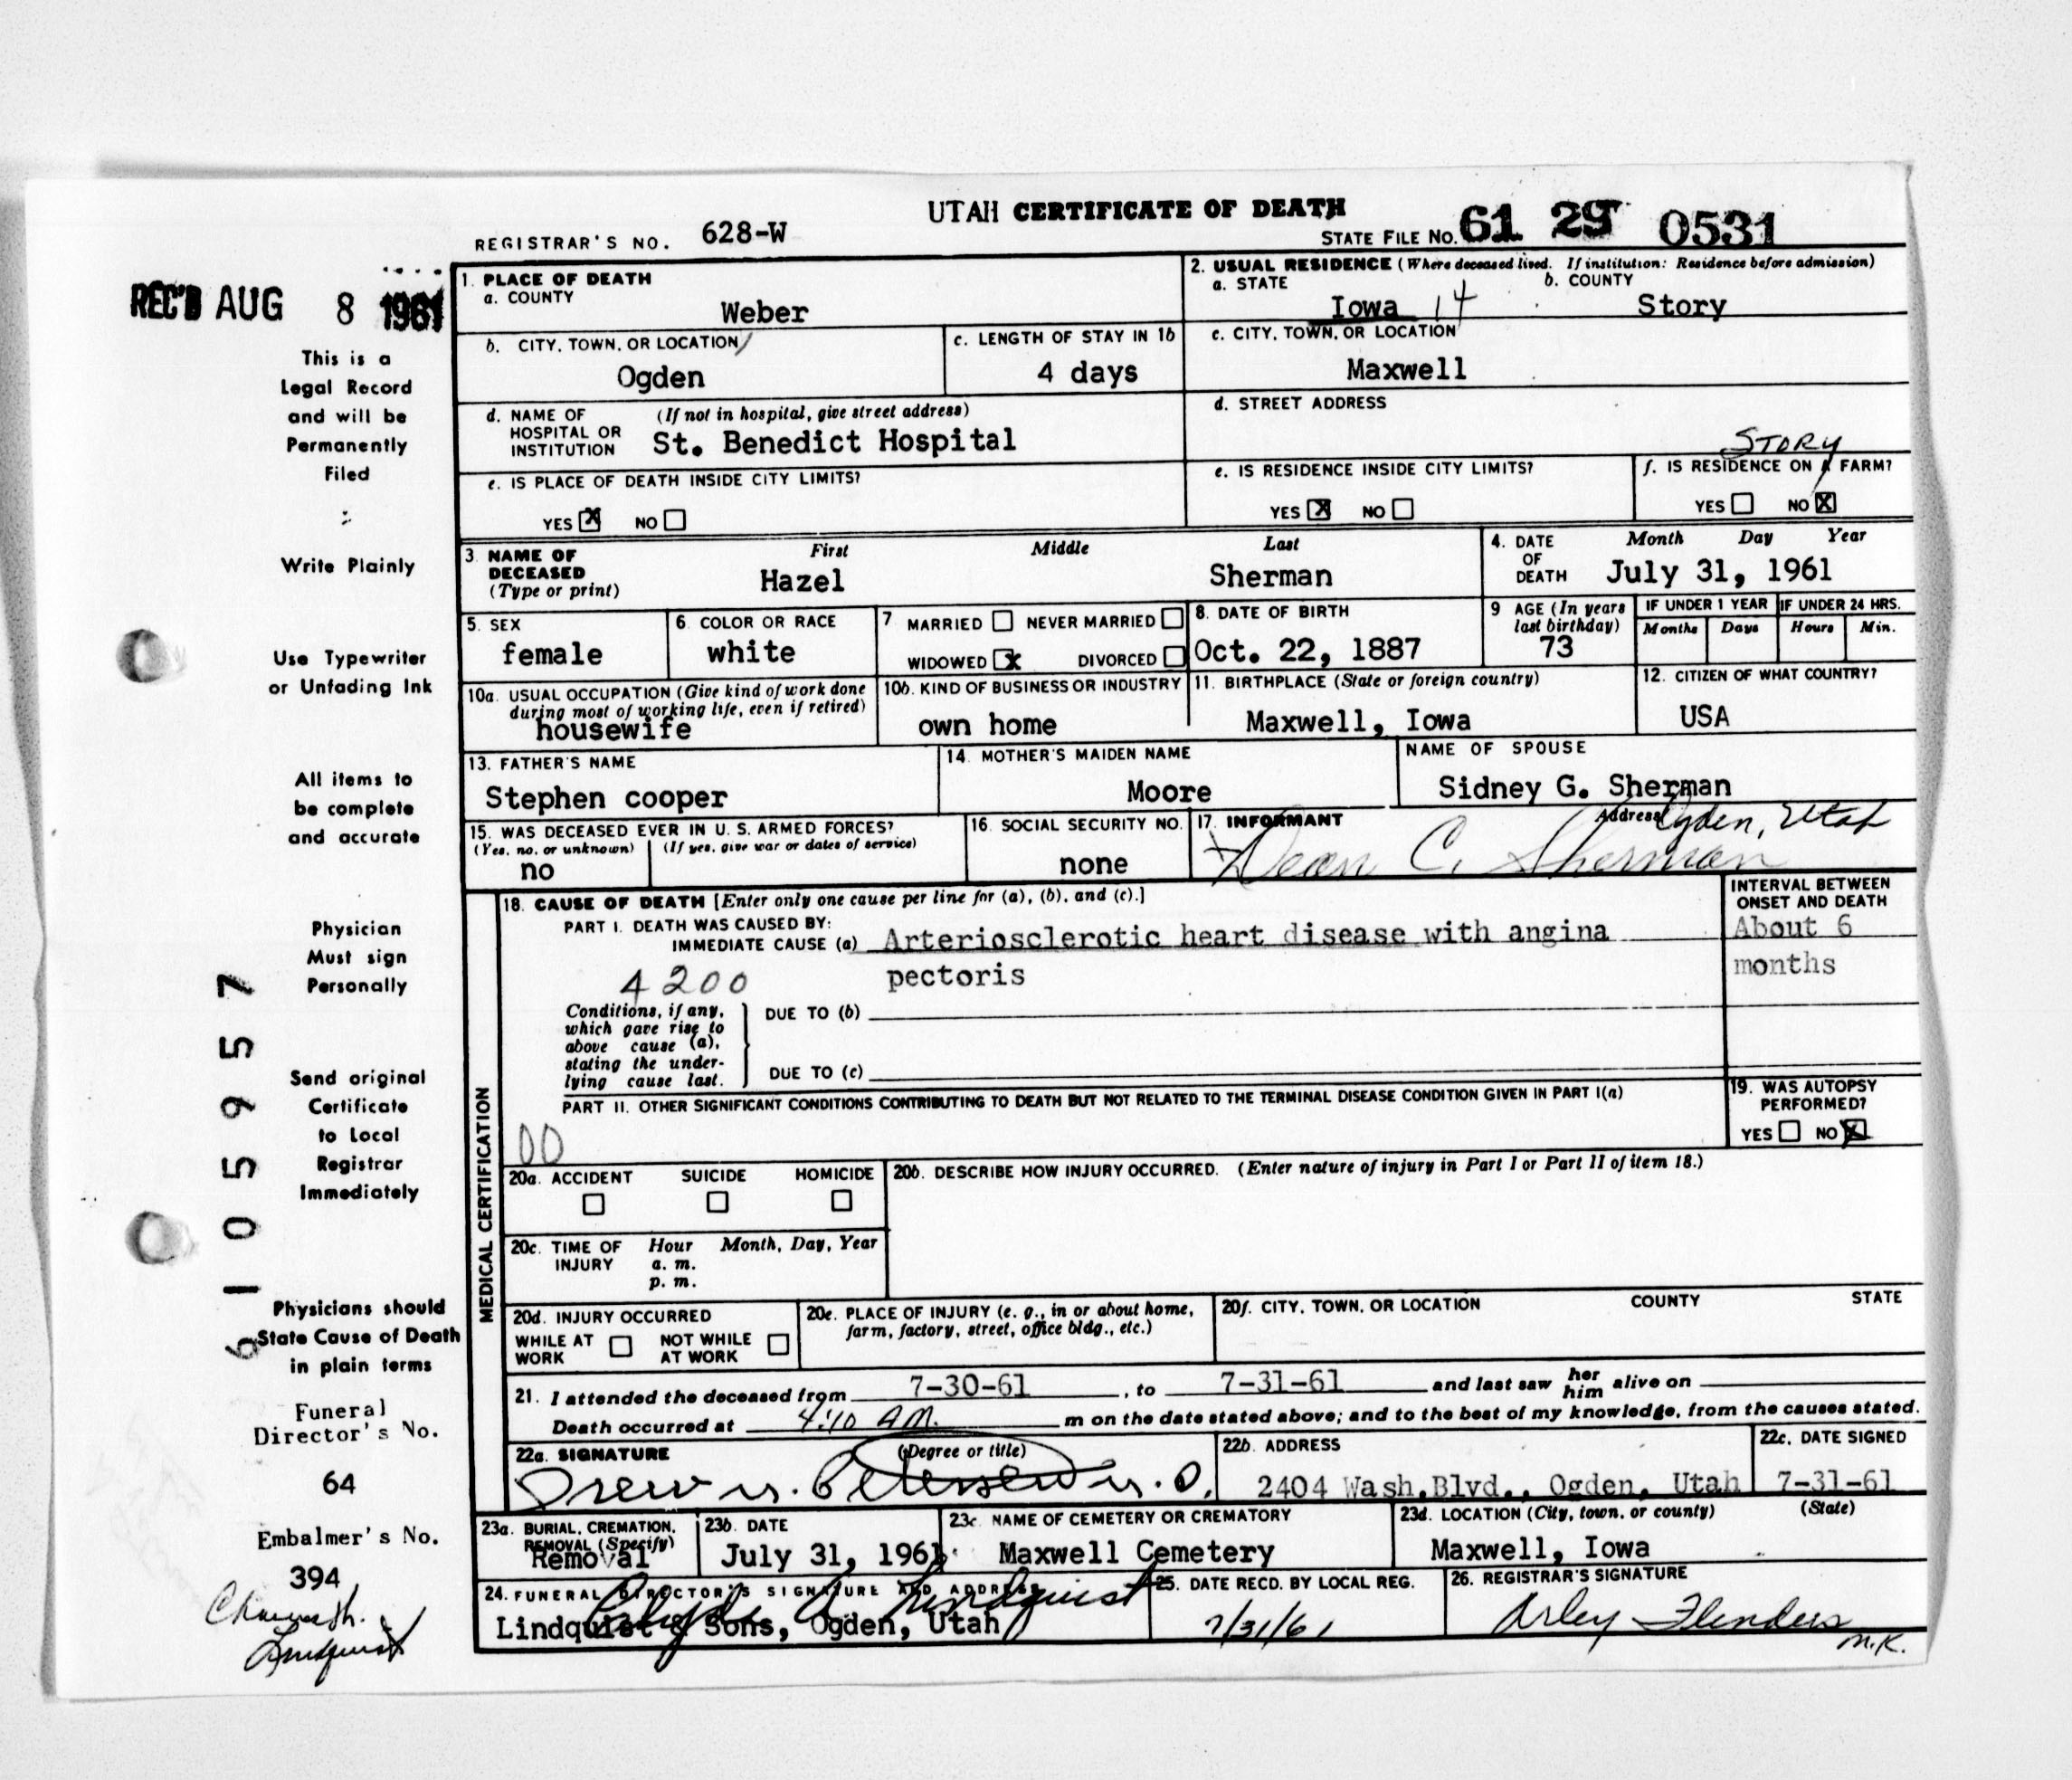 UTAH CERTIFICATE OF DEATH
REGISTRAR'S NO. 628-W
STATE FILE No. 61 29 0531
REC'D AUG 8 1961
This is a
Legal Record
and will be
Permanently
Filed
Write Plainly
Use Typewriter
or Unfading Ink
All items to
be complete
and accurate
Physician
Must sign
Personally
Send original
Certificate
to Local
Registrar
Immediately
Physicians should
State Cause of Death
in plain terms
Funeral
Director's No.
64
Embalmer's No.
394
Lindquist
6105957
1. PLACE OF DEATH
a. COUNTY
Weber
2. USUAL RESIDENCE (Where deceased lived. If institution: Residence before admission)
a. STATE
Iowa 14
b. COUNTY
Story
b. CITY, TOWN, OR LOCATION
Ogden
c. LENGTH OF STAY IN 1b
4 days
c. CITY, TOWN, OR LOCATION
Maxwell
d. NAME OF HOSPITAL OR INSTITUTION (If not in hospital, give street address)
St. Benedict Hospital
d. STREET ADDRESS
STORY
e. IS PLACE OF DEATH INSIDE CITY LIMITS?
YES X NO
e. IS RESIDENCE INSIDE CITY LIMITS?
YES X NO
f. IS RESIDENCE ON A FARM?
YES NO X
3. NAME OF DECEASED (Type or print)
First Middle Last
Hazel Sherman
4. DATE OF DEATH Month Day Year
July 31, 1961
5. SEX
female
6. COLOR OR RACE
white
7 MARRIED NEVER MARRIED
WIDOWED X DIVORCED
8. DATE OF BIRTH
Oct. 22, 1887
9 AGE (In years last birthday)
73
IF UNDER 1 YEAR
Months Days
IF UNDER 24 HRS.
Hours Min.
10a. USUAL OCCUPATION (Give kind of work done during most of working life, even if retired)
housewife
10b. KIND OF BUSINESS OR INDUSTRY
own home
11. BIRTHPLACE (State or foreign country)
Maxwell, Iowa
12. CITIZEN OF WHAT COUNTRY?
USA
13. FATHER'S NAME
Stephen cooper
14. MOTHER'S MAIDEN NAME
Moore
NAME OF SPOUSE
Sidney G. Sherman
15. WAS DECEASED EVER IN U. S. ARMED FORCES?
(Yes, no, or unknown) (If yes, give war or dates of service)
no
16. SOCIAL SECURITY NO.
none
17. INFORMANT Address Ogden, Utah
Dean C. Sherman
MEDICAL CERTIFICATION
18. CAUSE OF DEATH [Enter only one cause per line for (a), (b), and (c).]
INTERVAL BETWEEN ONSET AND DEATH
PART I. DEATH WAS CAUSED BY:
IMMEDIATE CAUSE (a) Arteriosclerotic heart disease with angina
pectoris
About 6
months
4200
Conditions, if any, which gave rise to above cause (a), stating the underlying cause last.
DUE TO (b)
DUE TO (c)
PART II. OTHER SIGNIFICANT CONDITIONS CONTRIBUTING TO DEATH BUT NOT RELATED TO THE TERMINAL DISEASE CONDITION GIVEN IN PART I(a)
00
19. WAS AUTOPSY PERFORMED?
YES NO X
20a. ACCIDENT SUICIDE HOMICIDE
20b. DESCRIBE HOW INJURY OCCURRED. (Enter nature of injury in Part I or Part II of item 18.)
20c. TIME OF INJURY Hour Month, Day, Year
a. m.
p. m.
20d. INJURY OCCURRED
WHILE AT WORK NOT WHILE AT WORK
20e. PLACE OF INJURY (e. g., in or about home, farm, factory, street, office bldg., etc.)
20f. CITY, TOWN, OR LOCATION COUNTY STATE
21. I attended the deceased from 7-30-61, to 7-31-61 and last saw her him alive on
Death occurred at 4:10 A.M. m on the date stated above; and to the best of my knowledge, from the causes stated.
22a. SIGNATURE (Degree or title)
Drew M. Petersen M.D.
22b. ADDRESS
2404 Wash.Blvd., Ogden, Utah
22c. DATE SIGNED
7-31-61
23a. BURIAL, CREMATION, REMOVAL (Specify)
Removal
23b. DATE
July 31, 1961
23c. NAME OF CEMETERY OR CREMATORY
Maxwell Cemetery
23d. LOCATION (City, town, or county) (State)
Maxwell, Iowa
24. FUNERAL DIRECTOR'S SIGNATURE AND ADDRESS
Clyde A Lindquist
Lindquist & Sons, Ogden, Utah
25. DATE RECD. BY LOCAL REG.
7/31/61
26. REGISTRAR'S SIGNATURE
Arley Flinders
M.K.